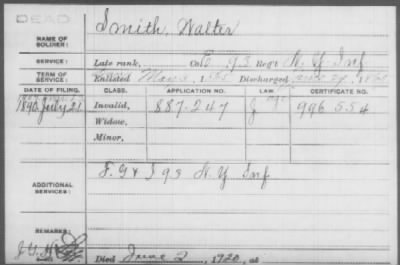 DEAD
NAME OF SOLDIER: Smith, Walter
SERVICE: Late rank, Co E 93 Regt N.Y. Inf
TERM OF SERVICE: Enlisted Discharged
DATE OF FILING. CLASS. APPLICATION NO. LAW. CERTIFICATE NO.
1890 July 21 Invalid, 887.247 J 996 554
Widow,
Minor,
ADDITIONAL SERVICES: F. G & I 93 N.Y Inf
REMARKS:
Died June 2, 1920, at